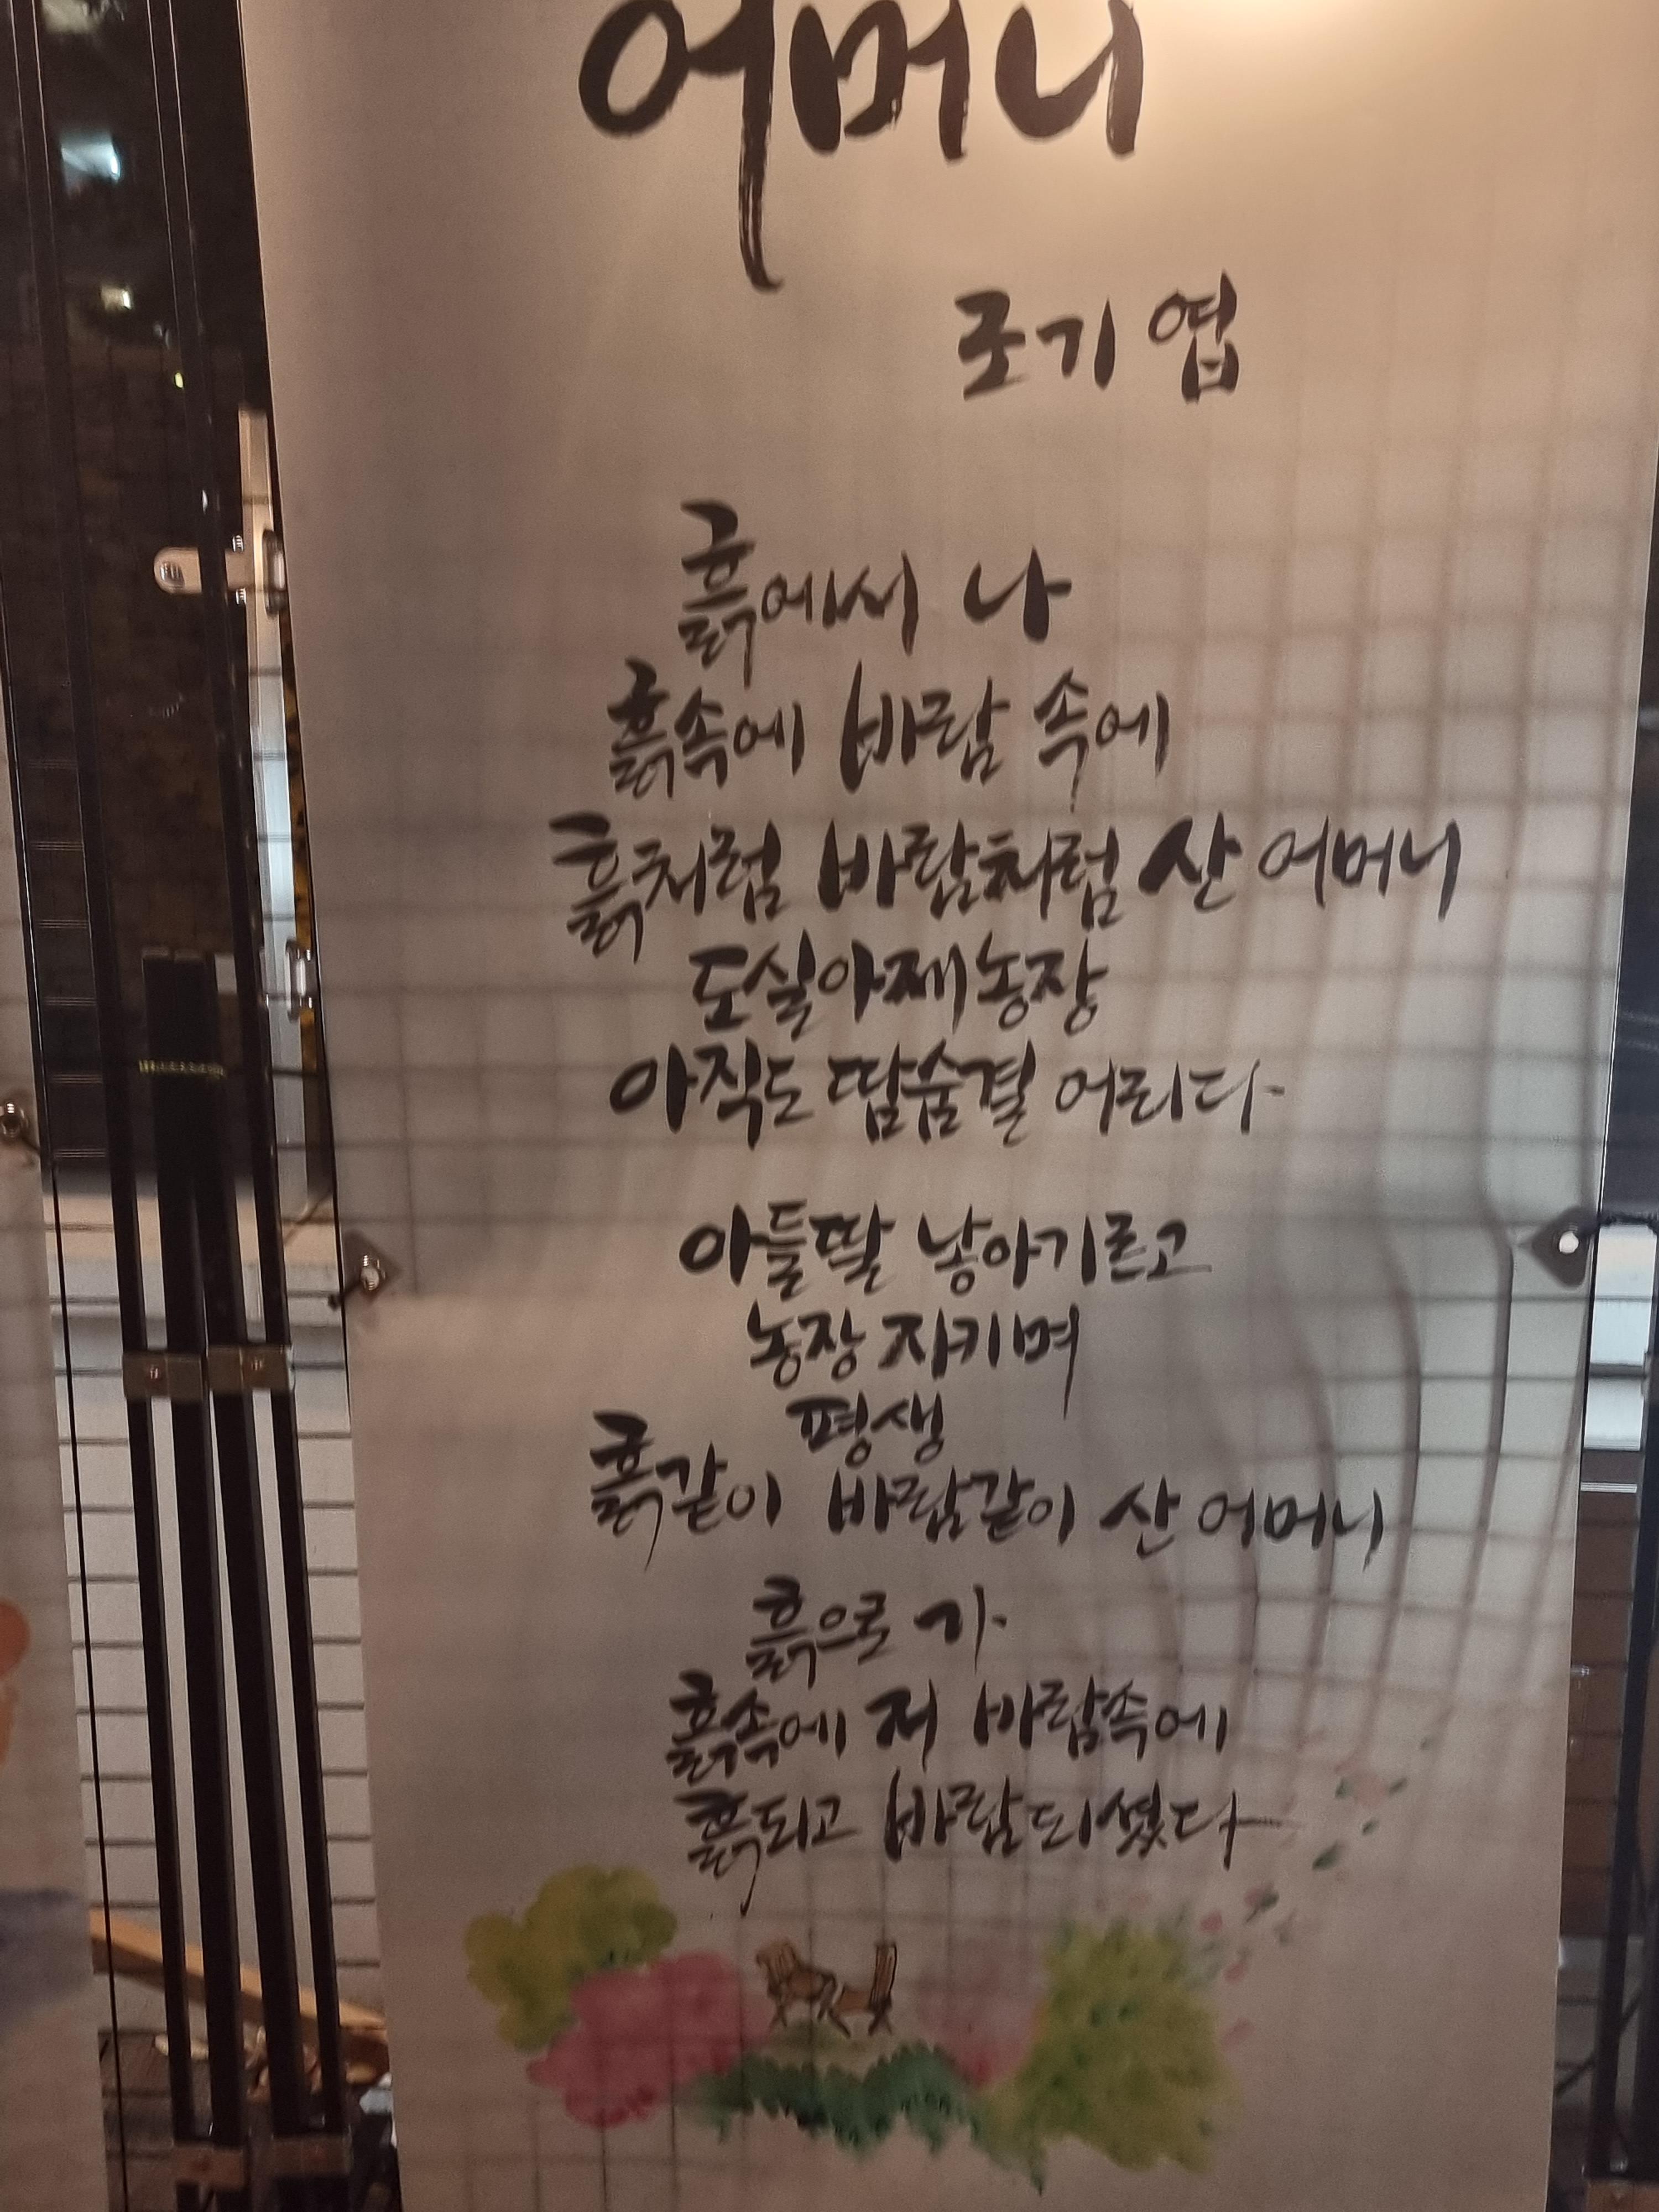 어머니
국기엽
흙에서 나
흙속에 바람 속에
흙처럼 바람처럼 산 어머니
도실아재농장
아직도 땀숨결 어리다
아들딸 낳아기르고
농장 지키며
평생
흙같이 바람같이 산 어머니
흙으로 가
흙속에 저 바람속에
흙되고 바람되셨다